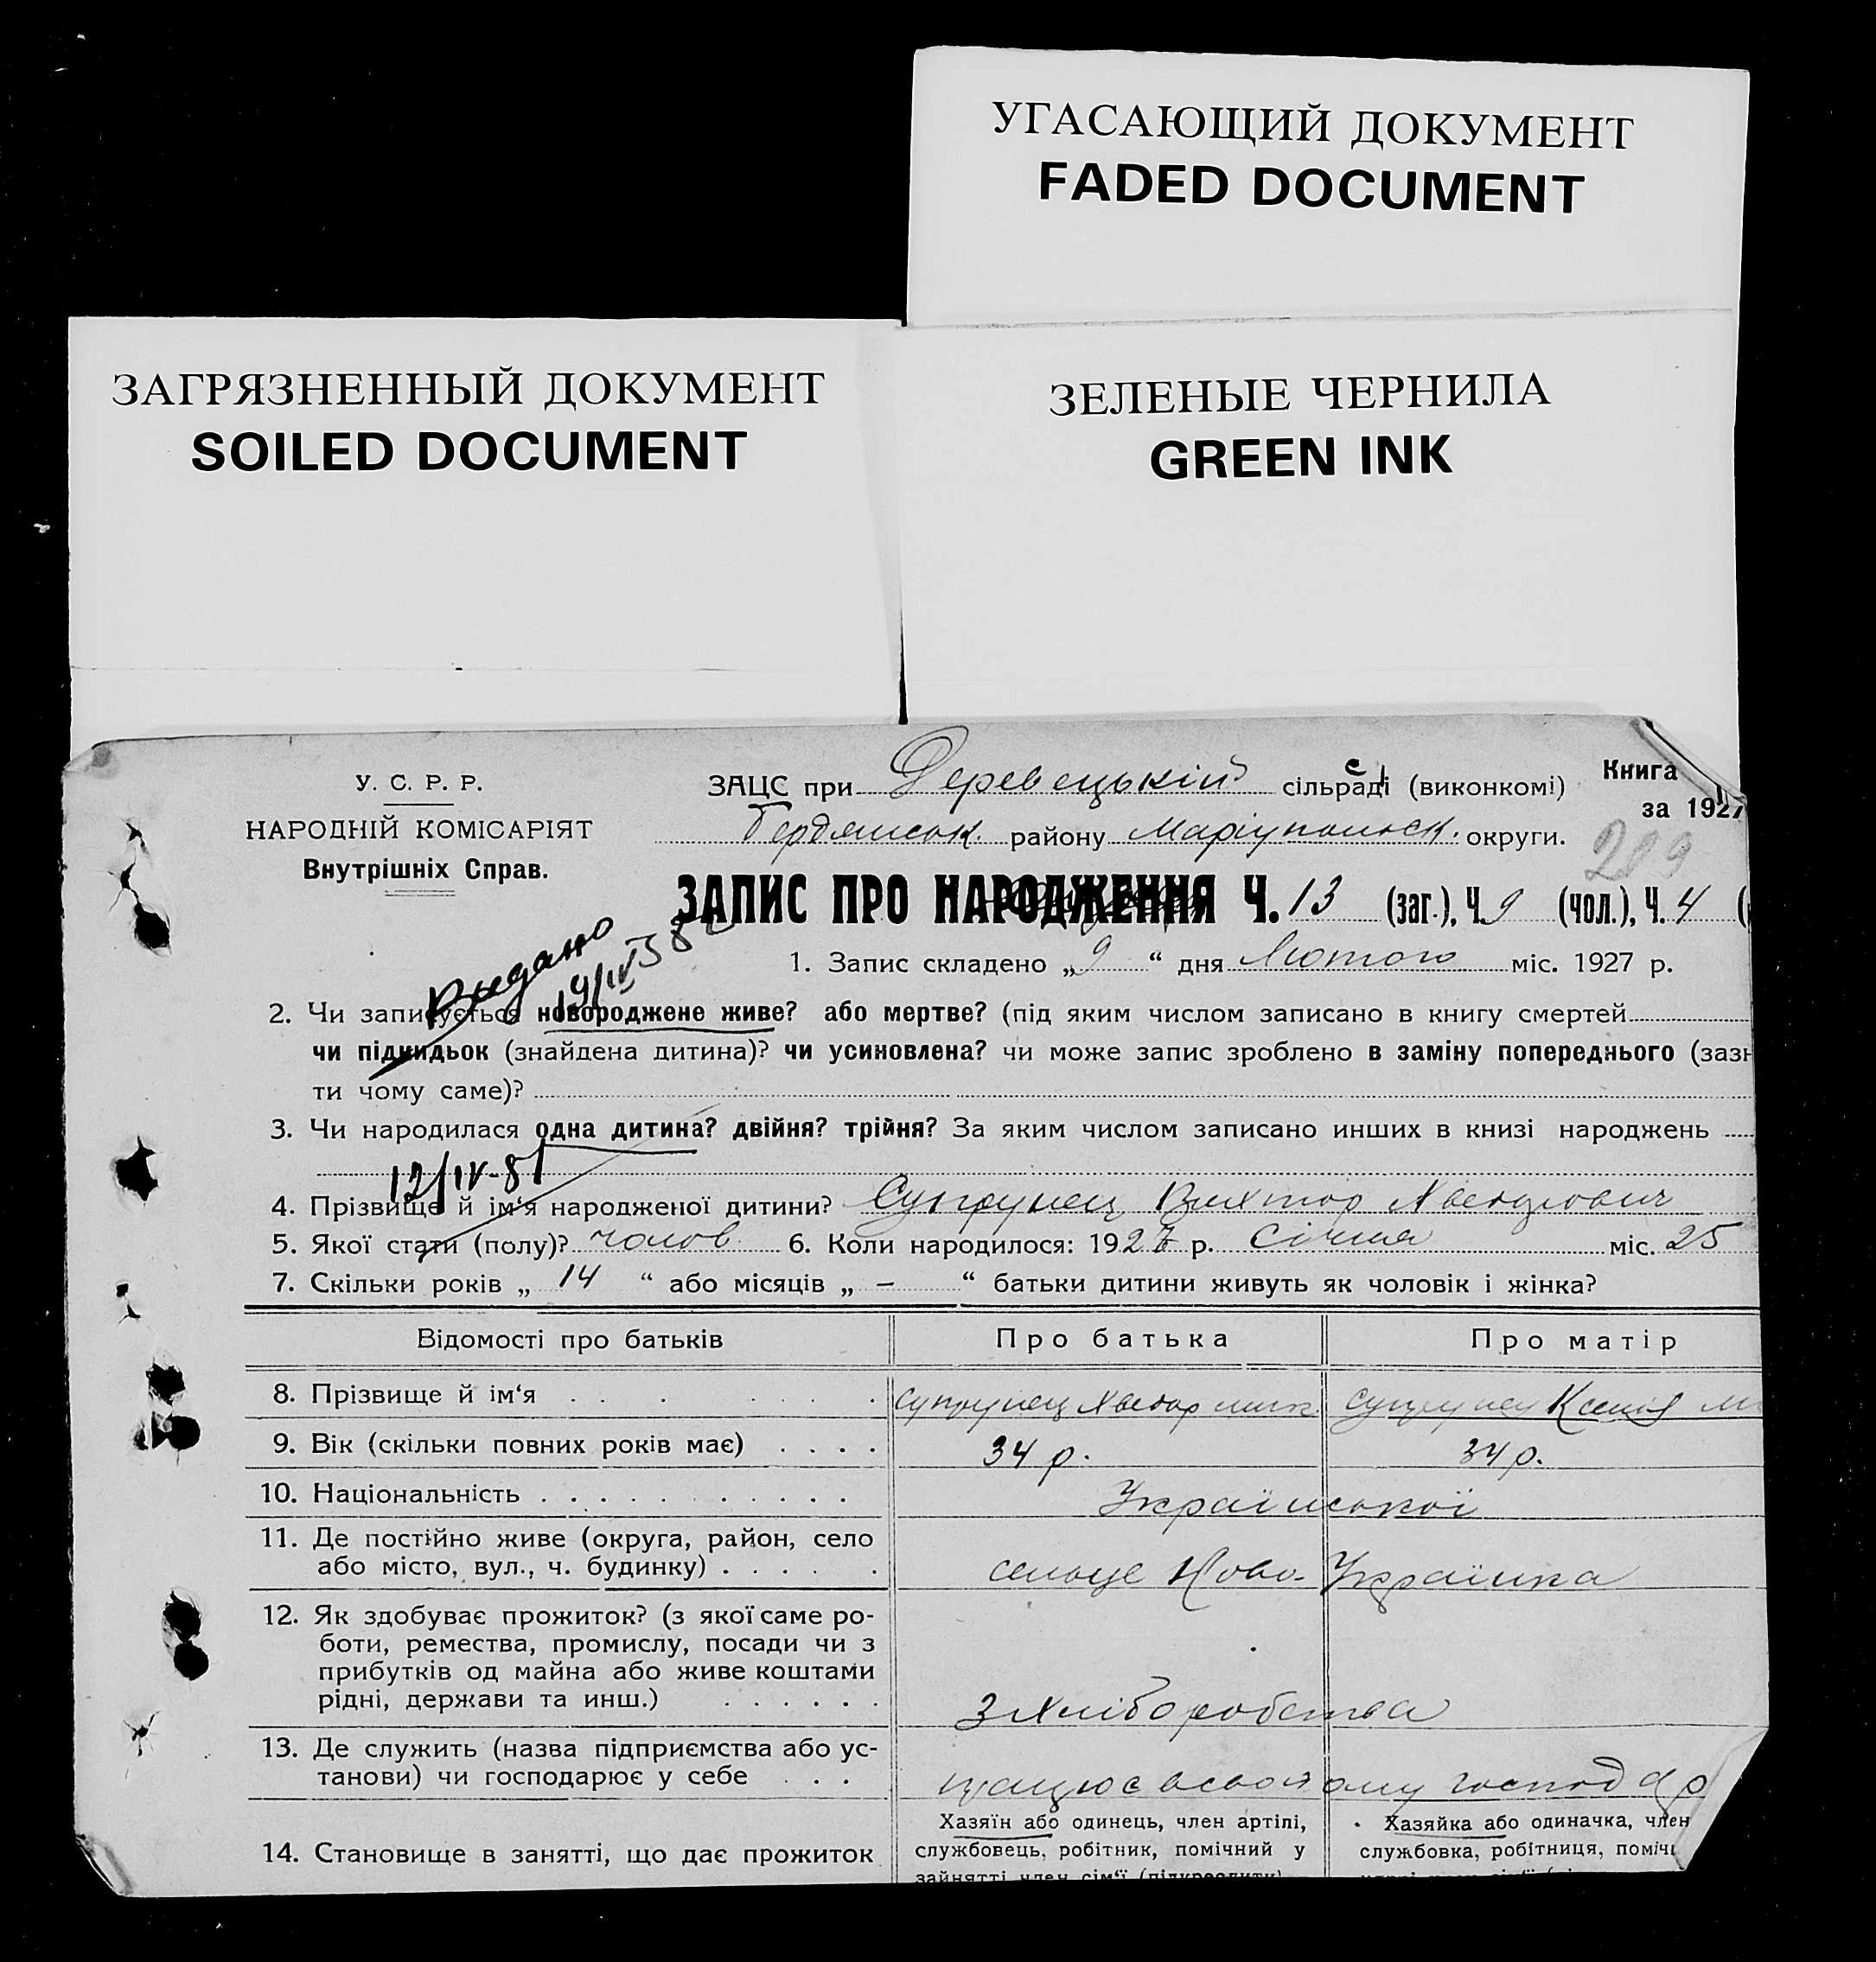 УГАСАЮЩИЙ ДОКУМЕНТ
FADED DOCUMENT
ЗАГРЯЗНЕННЫЙ ДОКУМЕНТ
SOILED DOCUMENT
ЗЕЛЕНЫЕ ЧЕРНИЛА
GREEN INK
У. С. Р. Р.
НАРОДНІЙ КОМІСАРІЯТ
Внутрішніх Справ.
ЗАЦС при Деревецький сільраді (виконкомі)
Бердянськ. району Маріупольськ. округи.
Книга
за 1927
209
ЗАПИС ПРО НАРОДЖЕННЯ Ч. 13 (заг.), Ч. 9 (чол.), Ч. 4 (
Видано
1. Запис складено „9“ дня Лютого міс. 1927 р.
2. Чи записується новороджене живе? або мертве? (під яким числом записано в книгу смертей
чи підкидьок (знайдена дитина)? чи усиновлена? чи може запис зроблено в заміну попереднього (зазн
ти чому саме)?
3. Чи народилася одна дитина? двійня? трійня? За яким числом записано инших в книзі народжень
12/IV-81
4. Прізвище й ім‘я народженої дитини? Супрунец Виктор Хведорович
5. Якої стати (полу)? чолов. 6. Коли народилося: 1927 р. Січня міс. 25
7. Скільки років „ 14 “ або місяців „ — “ батьки дитини живуть як чоловік і жінка?
Відомості про батьків Про батька Про матір
8. Прізвище й ім‘я Супрунец Хведор Супрунец Ксенія
9. Вік (скільки повних років має) 34 р. 34 р.
10. Національність Української
11. Де постійно живе (округа, район, село
або місто, вул., ч. будинку) сельце Ново-Українка
12. Як здобуває прожиток? (з якої саме ро-
боти, ремества, промислу, посади чи з
прибутків од майна або живе коштами
рідні, держави та инш.) З хліборобства
13. Де служить (назва підприємства або ус-
танови) чи господарює у себе працює в своєму господар
14. Становище в занятті, що дає прожиток
Хазяїн або одинець, член артілі,
службовець, робітник, помічний у
зайнятті член сім‘ї (підкреслити)
Хазяйка або одиначка, член
службовка, робітниця, поміч